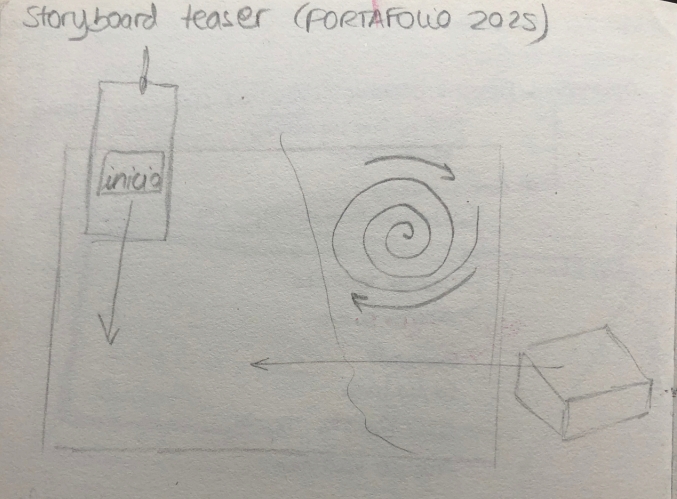 Storyboard teaser (PORTAFOLIO 2025)
inicio